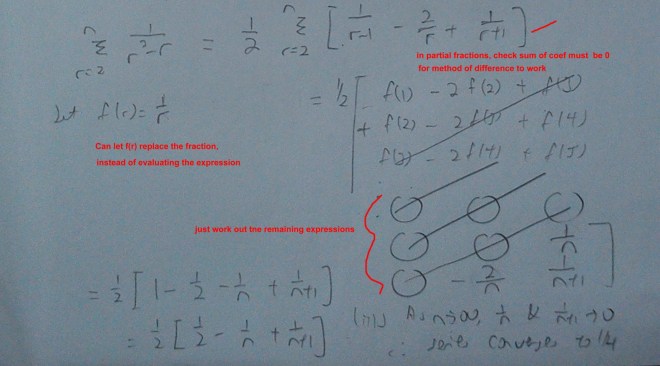 n n
Σ 1/(r³-r) = 1/2 Σ [ 1/(r-1) - 2/r + 1/(r+1) ]
r=2 r=2
in partial fractions, check sum of coef must be 0
for method of difference to work
Let f(r) = 1/r
= 1/2 [ f(1) - 2f(2) + f(3)
+ f(2) - 2f(3) + f(4)
f(3) - 2f(4) + f(5)
Can let f(r) replace the fraction,
instead of evaluating the expression
just work out tne remaining expressions
1/n
- 2/n 1/(n+1) ]
= 1/2 [ 1 - 1/2 - 1/n + 1/(n+1) ]
= 1/2 [ 1/2 - 1/n + 1/(n+1) ]
(iii) As n→∞, 1/n & 1/(n+1) → 0
∴ series converges to 1/4